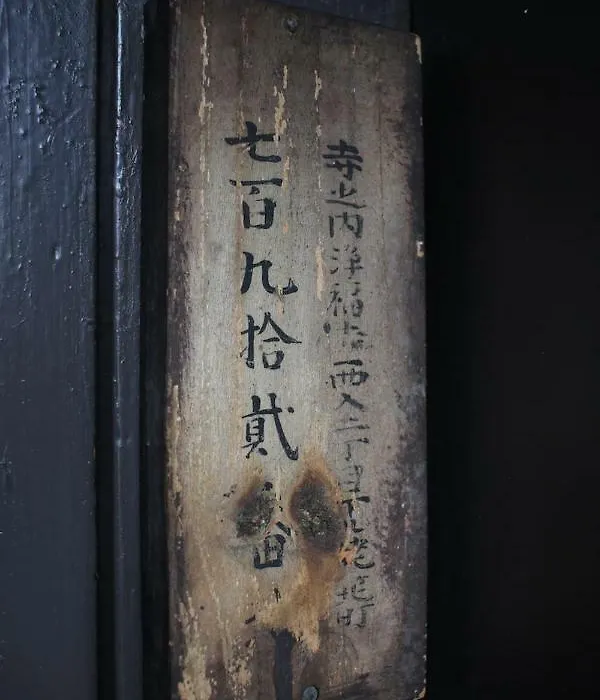 寺之内浄福寺西入二丁目町
七百九拾貳番